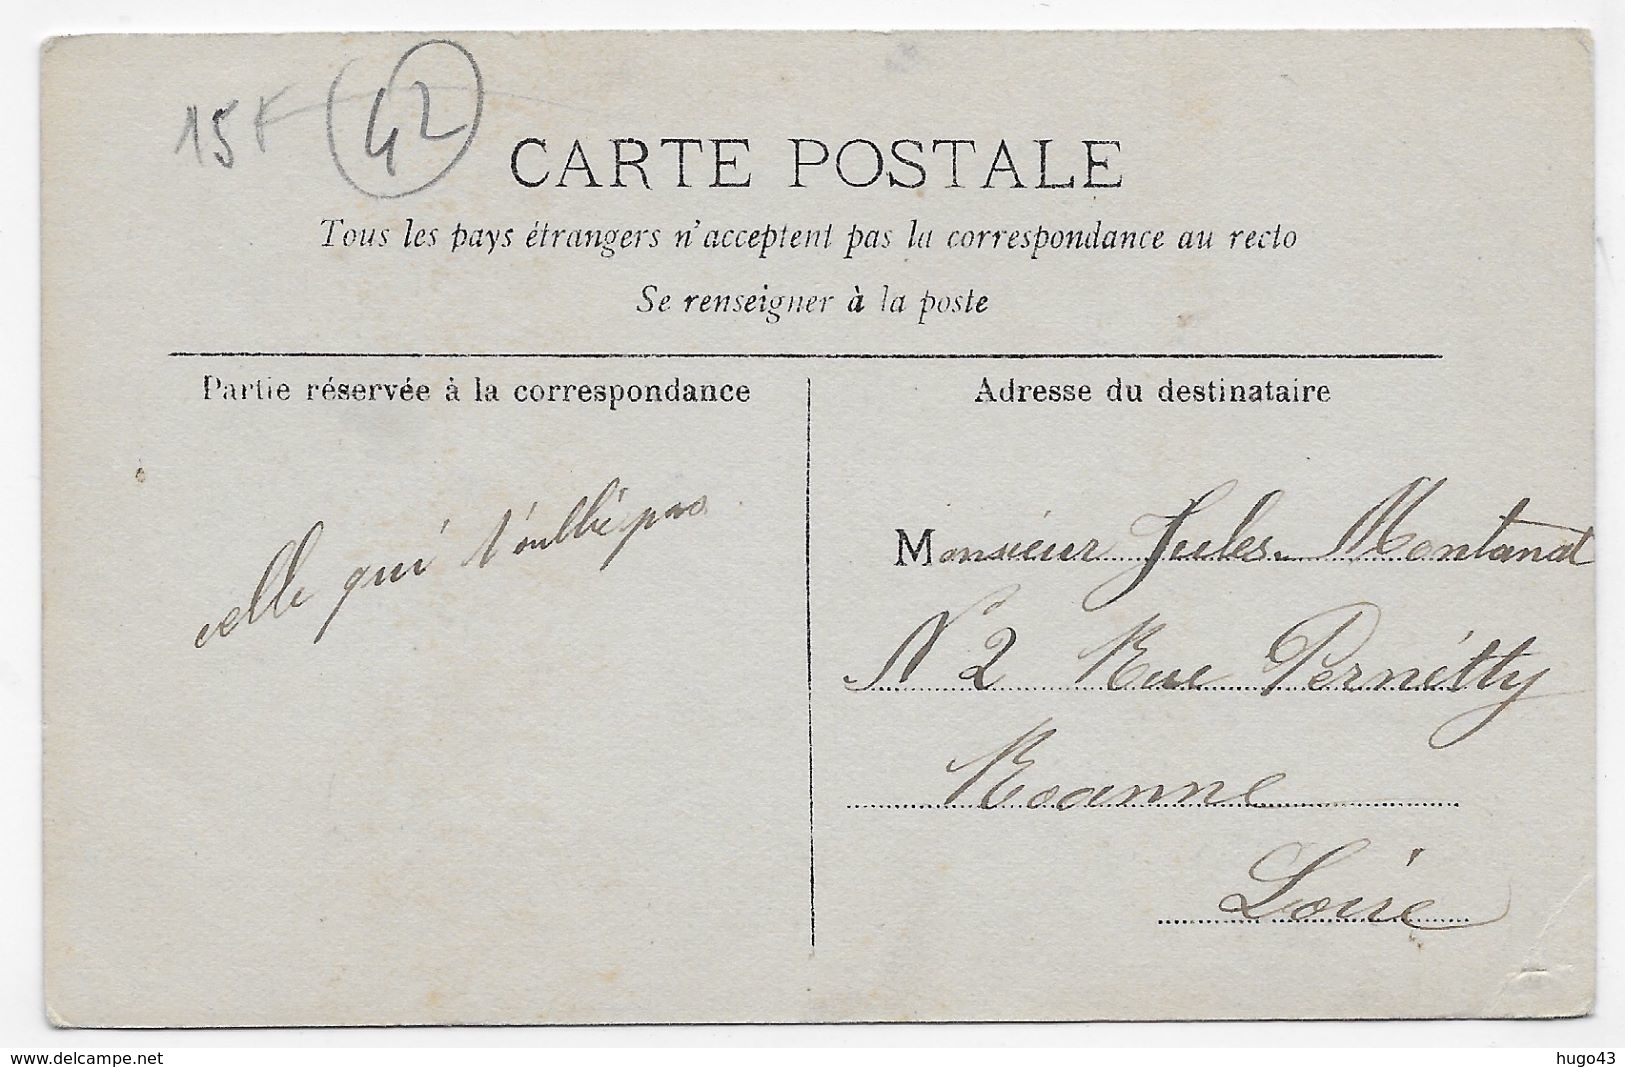 15F 42
CARTE POSTALE
Tous les pays étrangers n'acceptent pas la correspondance au recto
Se renseigner à la poste
Partie réservée à la correspondance
Adresse du destinataire
celle qui t'oublie pas
Monsieur Jules Montanat
N 2 Rue Pernétty
Roanne
Loire
www.delcampe.net
hugo43